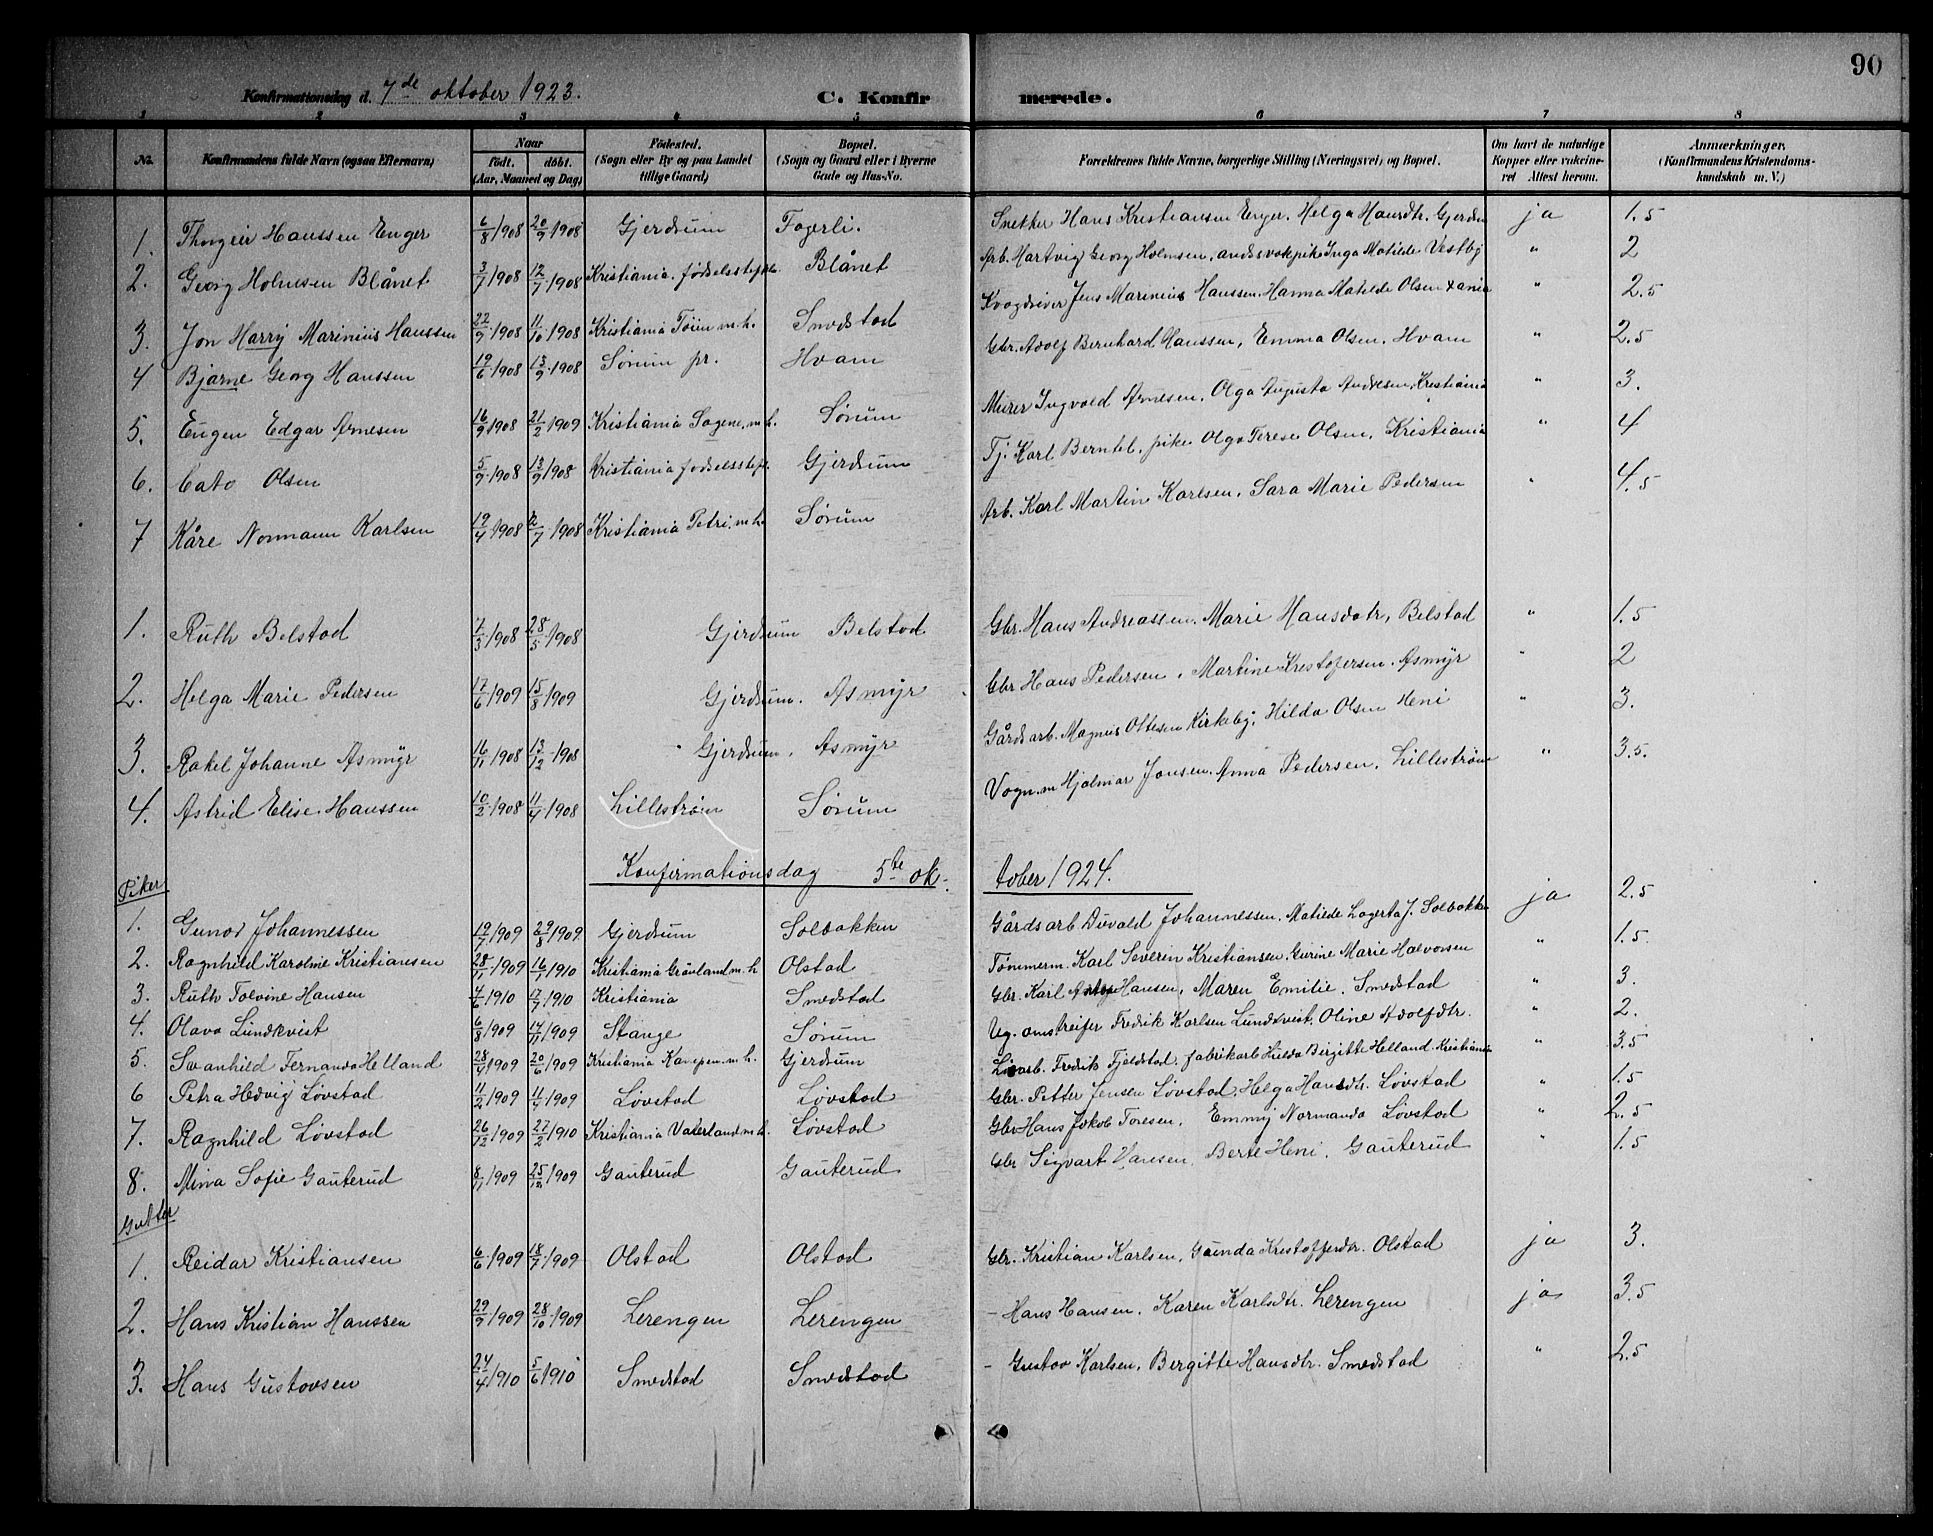 90
Konfirmationsdag d. 7de oktober 1923. C. Konfirmerede.
1 2 3 4 5 6 7 8
No. Konfirmandens fulde Navn (ogsaa Efternavn) Naar født. døbt. (Aar, Maaned og Dag) Fødested. (Sogn eller By og paa Landet tillige Gaard) Bopæl. (Sogn og Gaard eller i Byerne Gade og Hus-No. Forældrenes fulde Navne, borgerlige Stilling (Næringsvei) og Bopæl. Om havt de naturlige Kopper eller vakcineret Attest herom. Anmærkninger, (Konfirmandens Kristendomskundskab m. V.)
1. Thorgeir Hanssen Enger 6/8 1908 20/9 1908 Gjerdrum Fagerli. Snekker Hans Kristiansen Enger. Helga Hansdtr. Gjerdrum ja 1.5
2. Georg Holmsen Blånet 3/7 1908 12/7 1908 Kristiania. fødselsstift. Blånet Arb. Hartvig Georg Holmsen, pike Inga Matilde Vestby " 2
3. Jon Harry Marinius Hanssen 22/9 1908 11/10 1908 Kristiania Tøien m.h. Smedstad Jens Marinius Hanssen. Hanna Matilde Olsen Xania " 2.5
4 Bjarne Georg Hanssen 19/6 1908 13/9 1908 Sørum pr. Hvam Gbr. Adolf Bernhard Hanssen, Emma Olsen. Hvam " 2.5
5. Eugen Edgar Arnesen 16/9 1908 21/2 1909 Kristiania Sagene, m.h. Sørum Murer Ingvald Arnesen. Olga Augusta Andresen, Kristiania " 3.
6. Cato Olsen 5/9 1908 13/9 1908 Kristiania fødselsstift. Gjerdrum Tj. Karl Berntsl. pike Olga Terese Olsen, Kristiania " 4
7 Kåre Normann Karlsen 19/4 1908 2/7 1908 Kristiania Petri. m.h. Sørum Arb. Karl Martin Karlsen. Sara Marie Pedersen " 4.5
1. Ruth Belstad 7/3 1908 28/5 1908 Gjerdrum Belstad Gbr. Hans Andreassen. Marie Hansdatr, Belstad " 1.5
2. Helga Marie Pedersen 17/6 1909 15/8 1909 Gjerdrum. Asmyr Gbr Hans Pedersen, Martine Kristofersen. Asmyr " 2
3. Rakel Johanne Asmyr 16/11 1908 13/12 1908 Gjerdrum. Asmyr Gårdsarb. Magnus Ottesen Kirkeby. Hilda Olsen Heni " 3.
4. Astrid Elise Hanssen 10/2 1908 11/4 1908 Lillestrøm Sørum Vogn.m Hjalmar Jonsen. Anna Pedersen. Lillestrøm " 3.5.
Konfirmationsdag 5te oktober 1924.
Piker
1. Gunor Johannessen 19/7 1909 29/8 1909 Gjerdrum Solbakken Gårdsarb Duvald Johannessen. Matilde Lagerta J. Solbakken ja 2.5
2. Ragnhild Karoline Kristiansen 28/11 1909 16/1 1910 Kristiania Grønland m.h Olstad Tømmerm. Karl Severin Kristiansen. Gurine Marie Halvorsen " 1.5.
3. Ruth Tolvine Hansen 4/6 1910 17/7 1910 Kristiania Smedstad Gbr. Karl Hansen, Maren Emilie. Smedstad " 3.
4. Olava Lundkvist 6/8 1909 14/11 1909 Stange Sørum Ug. omstreifer Fredrik Karlsen Lundkvist. Oline Adolfdtr. " 2.
5. Svanhild Fernanda Helland 28/4 1909 20/6 1909 Kristiania Kampen m.h. Gjerdrum Fredrik Fjeldstad. fabrikarb Hilda Birgitte Helland. Kristiania " 3.5
6 Petra Hedvig Løvstad 11/2 1909 11/4 1909 Løvstad Løvstad Gbr. Petter Jensen Løvstad. Helga Hansdtr. Løvstad " 1.5
7. Ragnhild Løvstad 26/12 1909 27/2 1910 Kristiania Vaterland m.h. Løvstad Gbr Hans Jakob Toresen, Emmy Normanda Løvstad " 2.5
8. Mina Sofie Gauterud 8/11 1909 25/12 1909 Gauterud Gauterud Gbr Sigvart Hansen. Berte Heni. Gauterud " 1.5
Gutter
1. Reidar Kristiansen 6/6 1909 18/7 1909 Olstad Olstad Gbr. Kristian Karlsen, Gunda Kristofferdtr. Olstad ja 3.
2. Hans Kristian Hanssen 29/9 1909 28/10 1909 Lerengen Lerengen - Hans Hansen. Karen Karlsdtr. Lerengen ja 3.5
3. Hans Gustavsen 24/4 1910 5/6 1910 Smedstad Smedstad - Gustav Karlsen. Bergitte Hansdtr. Smedstad " 2.5